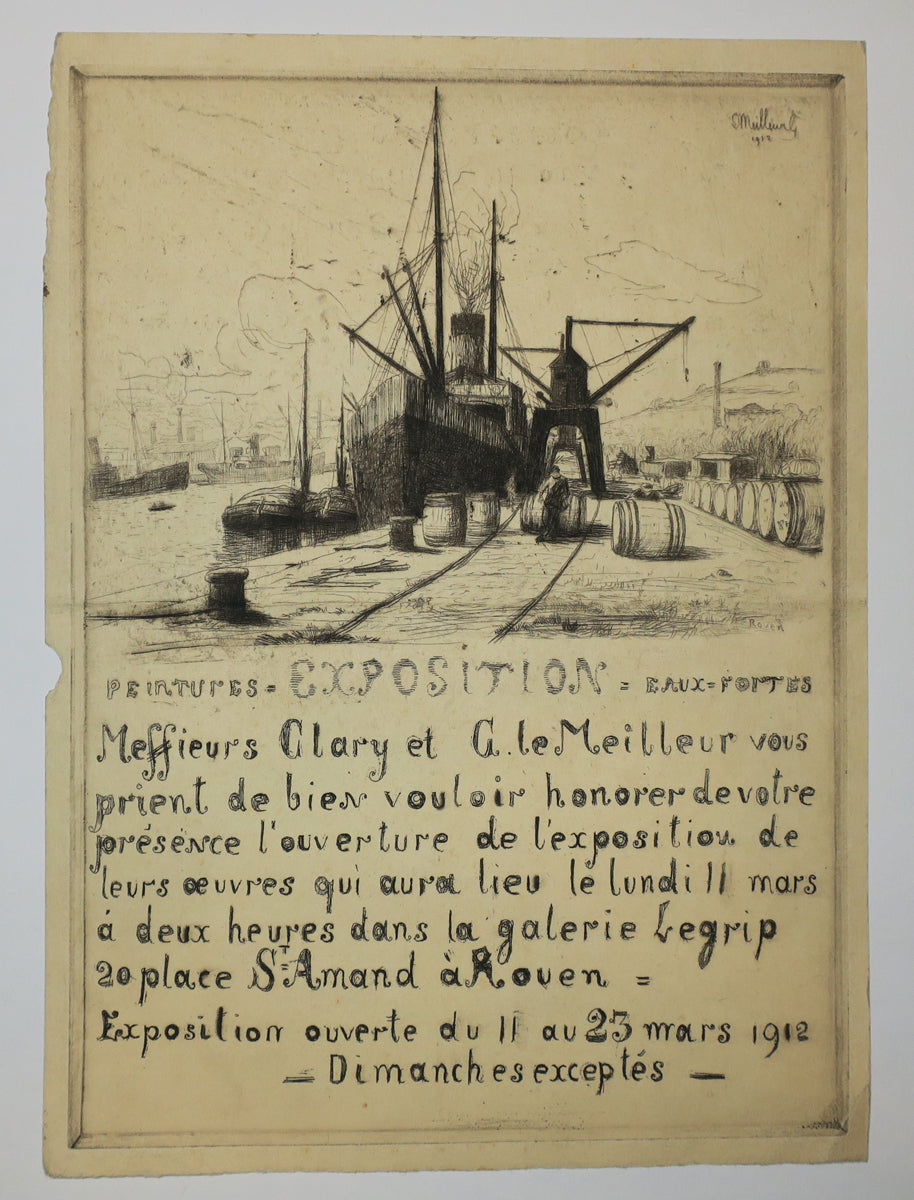 G Meilleur
1912
Rouen
PEINTURES = EXPOSITION = EAUX=FORTES
Messieurs Clary et G. le Meilleur vous
prient de bien vouloir honorer de votre
présence l'ouverture de l'exposition de
leurs œuvres qui aura lieu le lundi 11 mars
à deux heures dans la galerie Legrip
20 place St Amand à Rouen =
Exposition ouverte du 11 au 23 mars 1912
— Dimanches exceptés —